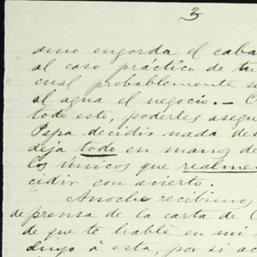 3
amo engorda el caba
al caso práctico de tu
cual probablemente se
al agua el negocio. - C
todo esto, poderles asegu
Papa decidir nada de
deja todo en manos de
los únicos que realmen
cidir con acierto.
Anoche recibimos
de prensa de la carta de C
de que te hablé en mi
dirijo á ésta, por si ac